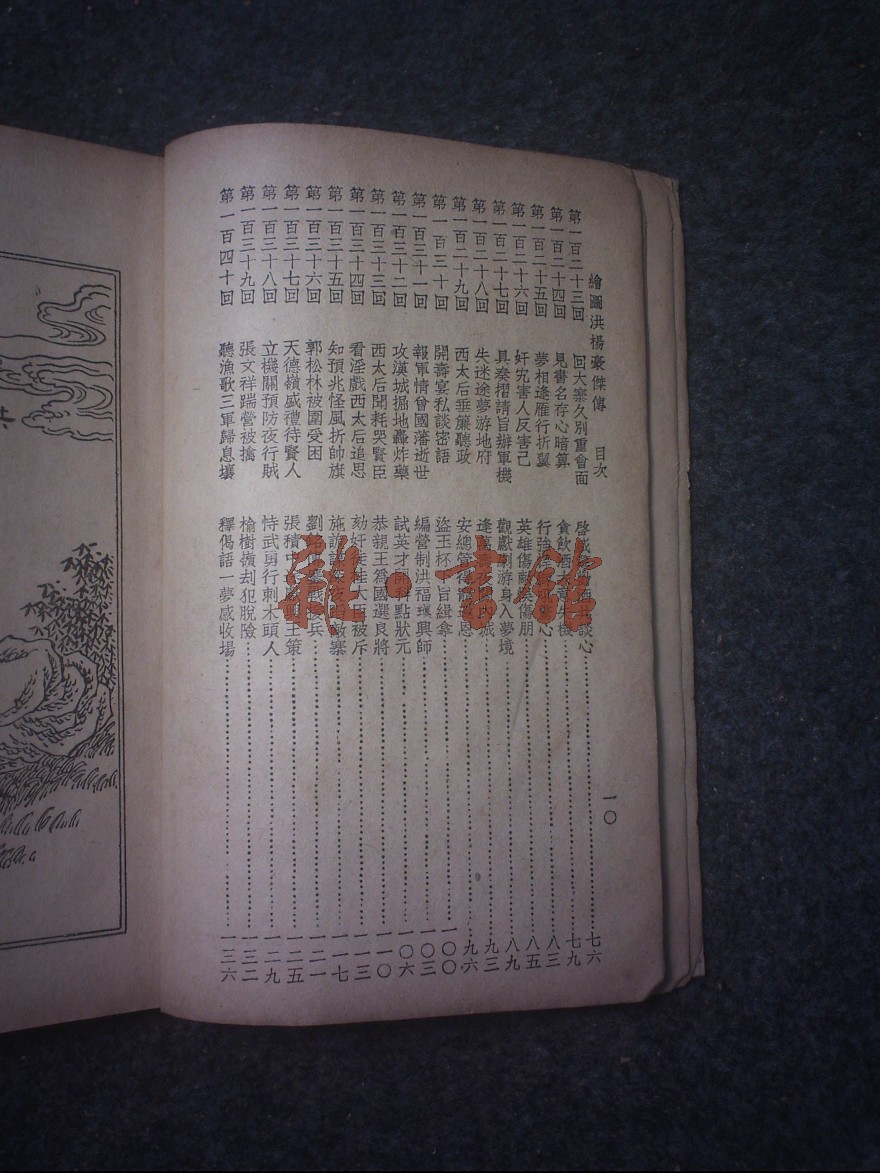 繪圖洪楊豪傑傳 目次 一〇
第一百二十三回 回大寨久別重會面 談心 七六
第一百二十四回 見書名存心暗算 貪飲酒 七九
第一百二十五回 夢相逢雁行折翼 行強 心 八三
第一百二十六回 奸宄害人反害己 英雄傷 傷朋 八五
第一百二十七回 具奏摺請旨辦軍機 觀獻 游身入夢境 八九
第一百二十八回 失迷途夢游地府 逢 城 九三
第一百二十九回 西太后垂簾聽政 安總管 恩 九六
第一百三十回 開壽宴私談密語 盜玉杯 旨緝拿 一〇〇
第一百三十一回 報軍情曾國藩逝世 編營制洪福瑱興師 一〇三
第一百三十二回 攻漢城掘地轟炸藥 試英才開科點狀元 一〇六
第一百三十三回 西太后聞耗哭賢臣 恭親王爲國選良將 一一〇
第一百三十四回 看淫戲西太后追思 劾奸佞 大臣被斥 一一三
第一百三十五回 知預兆怪風折帥旗 施 敵寨 一一七
第一百三十六回 郭松林被圍受困 劉銘 兵 一二一
第一百三十七回 天德嶺盛禮待賢人 張積中 王策 一二五
第一百三十八回 立機關預防夜行賊 恃武勇行刺木頭人 一二九
第一百三十九回 張文祥踹營被擒 榆樹嶺刦犯脫險 一三二
第一百四十回 聽漁歌三軍歸息壤 釋偈語一夢感收場 一三六
雜·書館